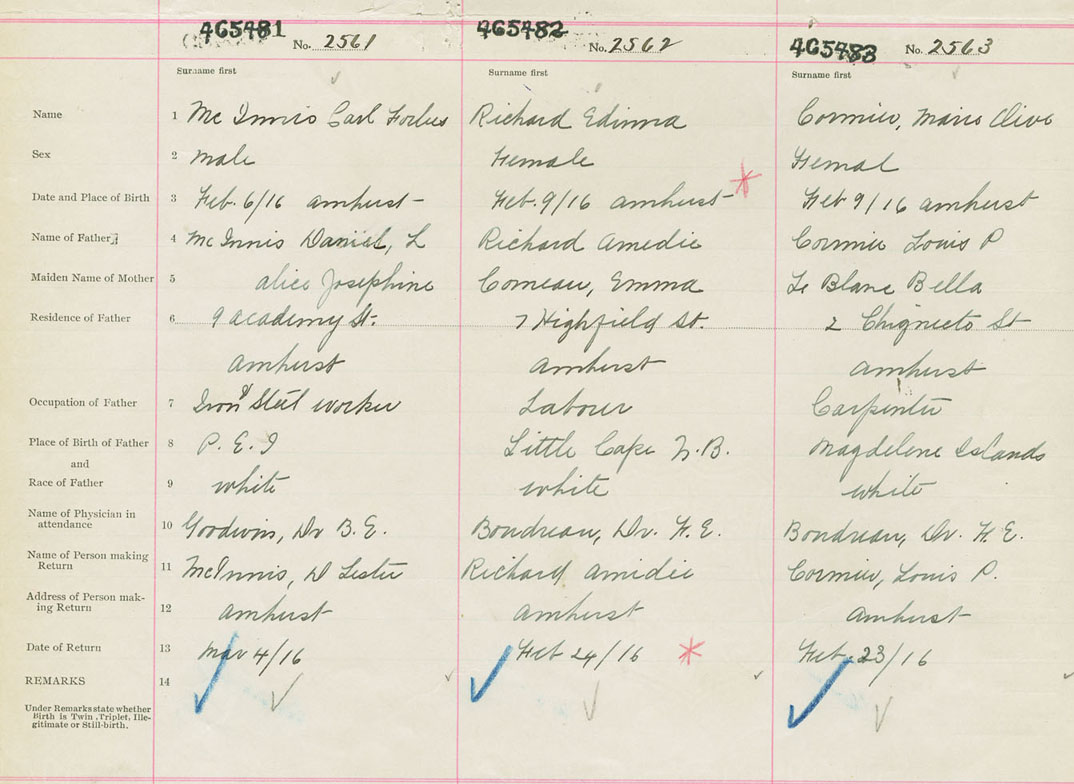 465481 No. 2561 465482 No. 2562 465483 No. 2563
Surname first Surname first Surname first
Name 1 Mc Innis Carl Forbes Richard Edinna Cormier, Marie Olive
Sex 2 male Female Femal
Date and Place of Birth 3 Feb. 6/16 amherst Feb. 9/16 amherst Feb 9/16 amherst
Name of Father 4 Mc Innis Daniel, L Richard Amedie Cormier Louis P
Maiden Name of Mother 5 alice Josephine Comeau, Emma Le Blanc Bella
Residence of Father 6 9 academy St. 7 Highfield St. 2 Chignecto St
amherst amherst amherst
Occupation of Father 7 Iron & Steel worker Labour Carpenter
Place of Birth of Father 8 P. E. I Little Cape N.B. Magdelene Islands
and
Race of Father 9 white white white
Name of Physician in
attendance 10 Goodwin, Dr B. E. Boudreau, Dr. F. E. Boudreau, Dr. F. E.
Name of Person making
Return 11 McInnis, D Lester Richard Amidie Cormier, Louis P.
Address of Person mak-
ing Return 12 amherst amherst amherst
Date of Return 13 Mar 4/16 Feb 24/16 Feb. 23/16
REMARKS 14
Under Remarks state whether
Birth is Twin, Triplet, Ille-
gitimate or Still-birth.